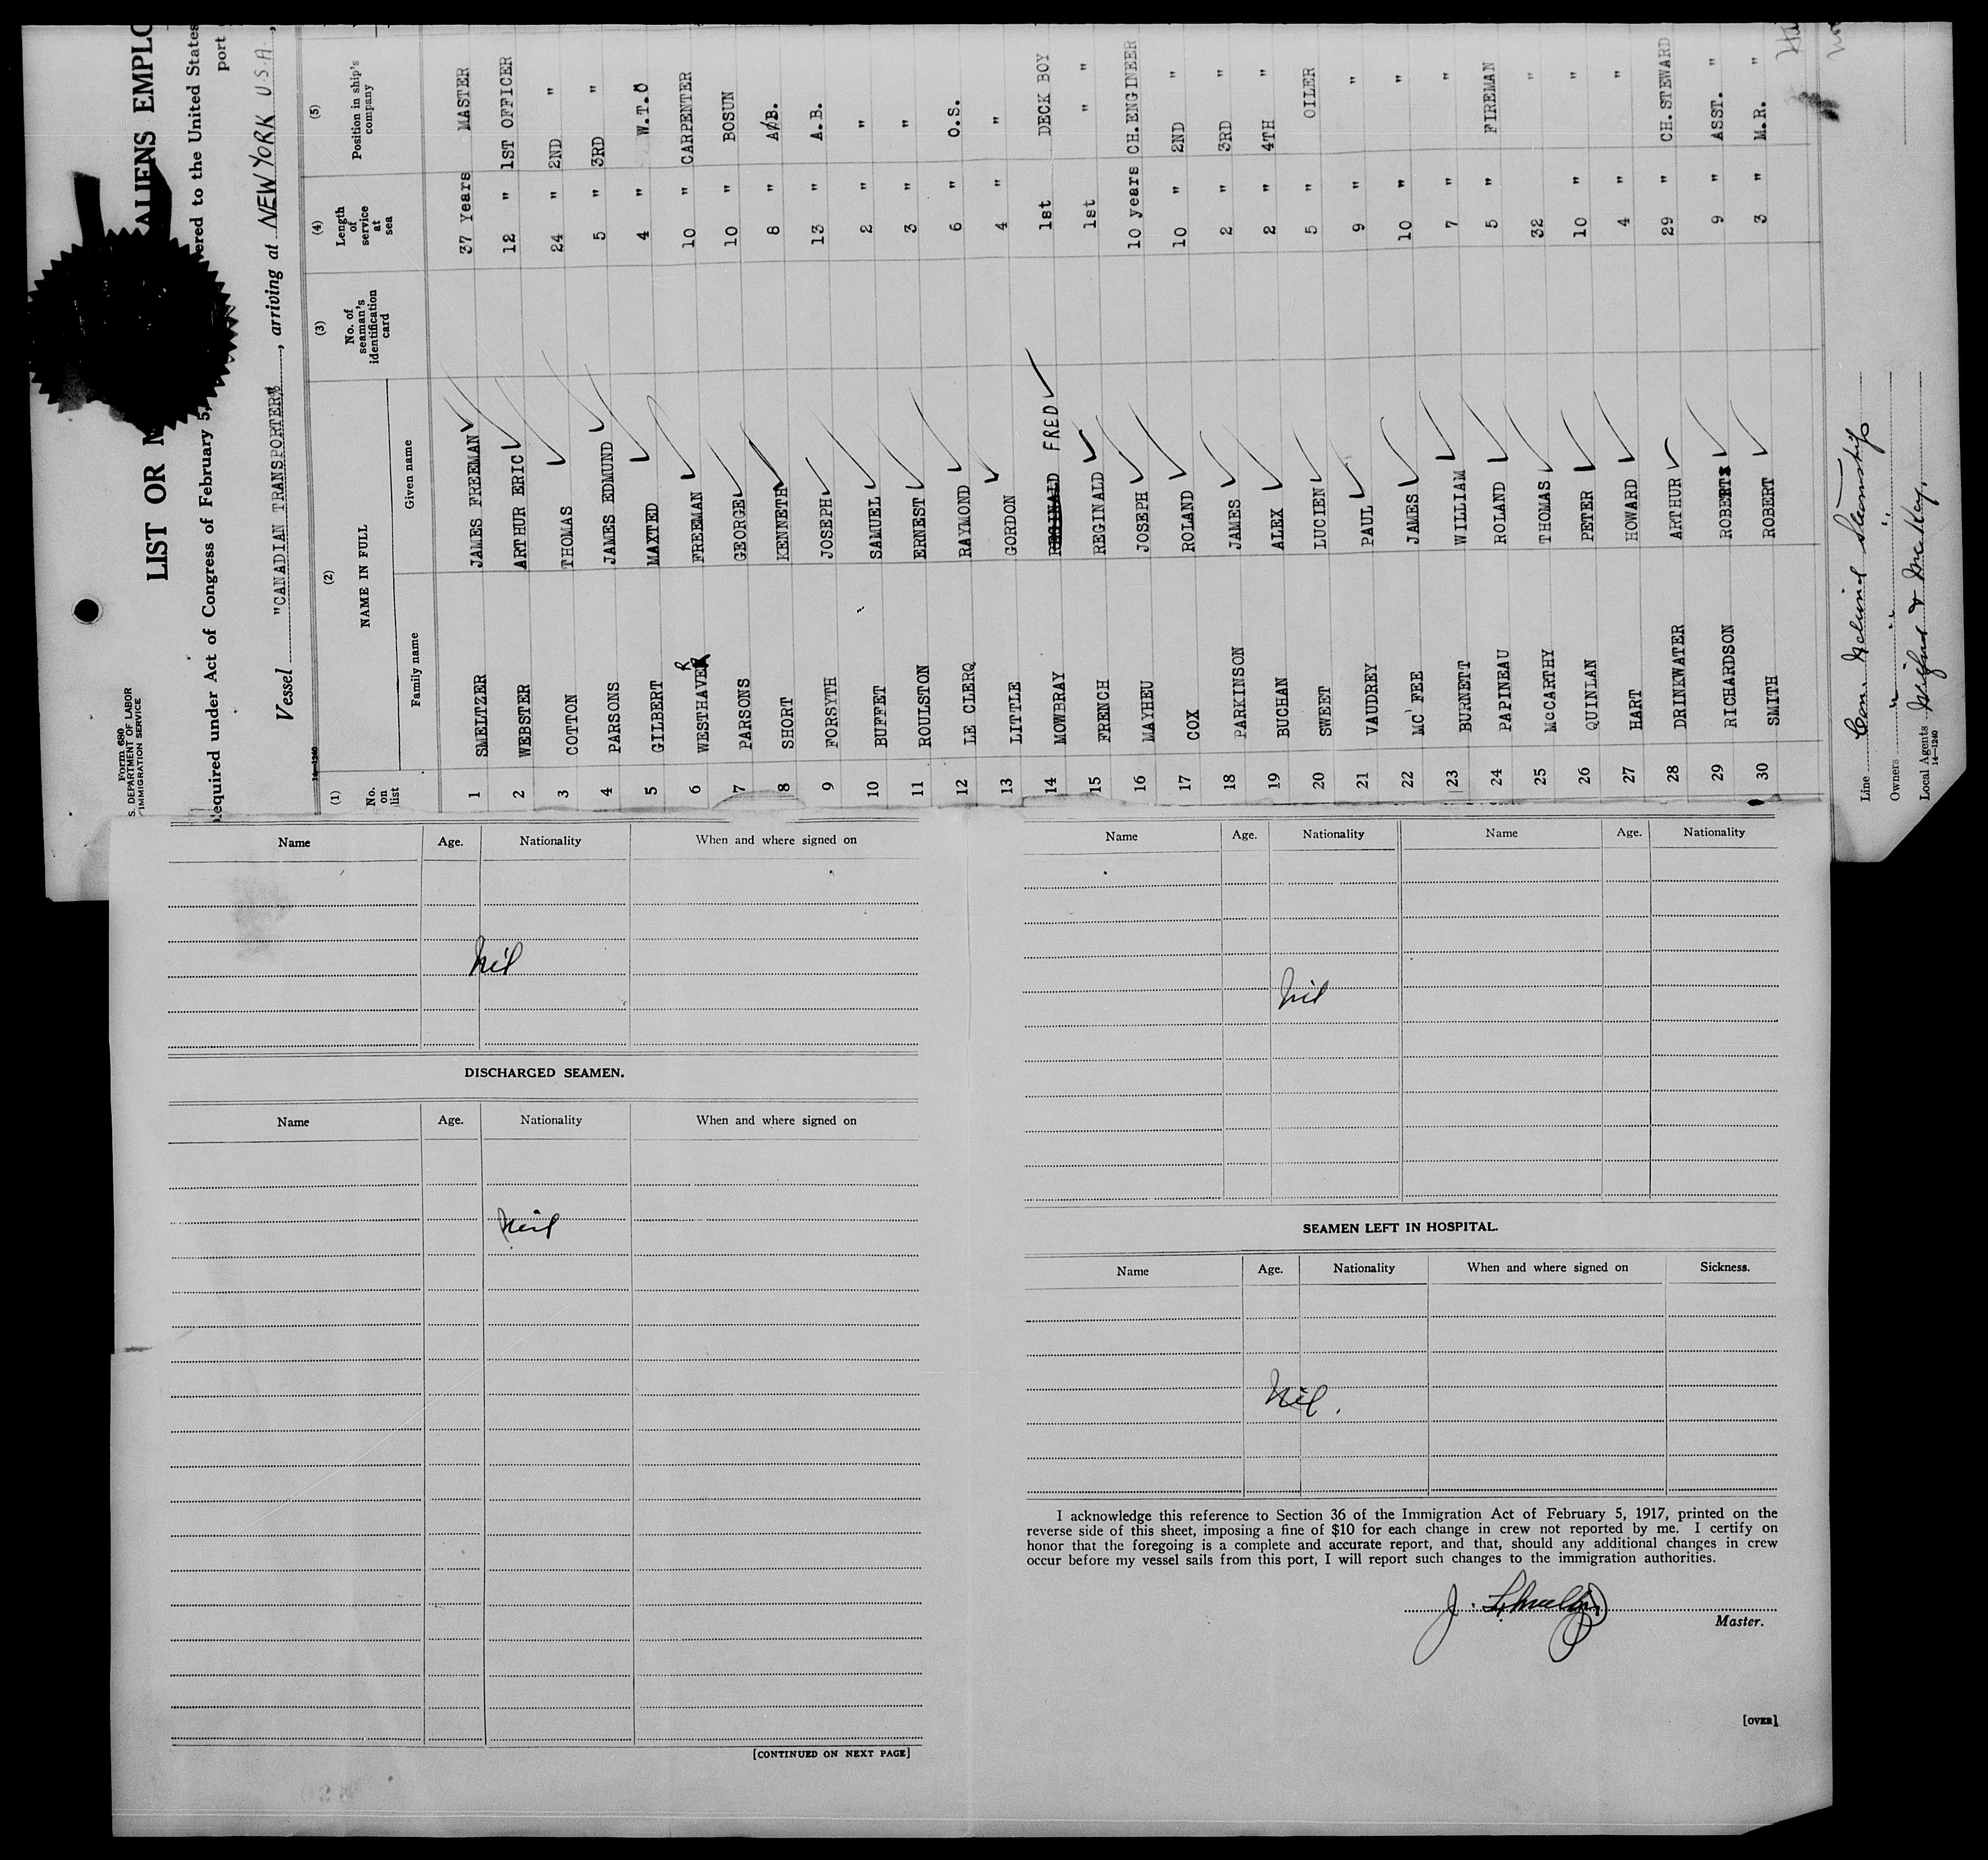 Form 680
S. DEPARTMENT OF LABOR
IMMIGRATION SERVICE
LIST OR ALIENS EMPLO
equired under Act of Congress of February 5, ered to the United States
port
Vessel "CANADIAN TRANSPORTER", arriving at NEW YORK U.S.A.,
14—1240
(1) (2) (3) (4) (5)
No. on list NAME IN FULL No. of seaman's identification card Length of service at sea Position in ship's company
Family name Given name
1 SMELTZER JAMES FREEMAN 37 Years MASTER
2 WEBSTER ARTHUR ERIC 12 " 1ST OFFICER
3 COTTON THOMAS 24 " 2ND "
4 PARSONS JAMES EDMUND 5 " 3RD "
5 GILBERT MAXTED 4 " W.T.O
6 WESTHAVER R FREEMAN 10 " CARPENTER
7 PARSONS GEORGE 10 " BOSUN
8 SHORT KENNETH 8 " A.B.
9 FORSYTH JOSEPH 13 " A.B.
10 BUFFET SAMUEL 2 " "
11 ROULSTON ERNEST 3 " "
12 LE CLERQ RAYMOND 6 " O.S.
13 LITTLE GORDON 4 " "
14 MOWBRAY REGINALD FRED 1st DECK BOY
15 FRENCH REGINALD 1st " "
16 MAYHEU JOSEPH 10 years CH.ENGINEER
17 COX ROLAND 10 " 2ND "
18 PARKINSON JAMES 2 " 3RD "
19 BUCHAN ALEX 2 " 4TH "
20 SWEET LUCIEN 5 " OILER
21 VAUDREY PAUL 9 " "
22 MC'FEE JAMES 10 " "
23 BURNETT WILLIAM 7 " "
24 PAPINEAU ROLAND 5 " FIREMAN
25 McCARTHY THOMAS 32 "
26 QUINLAN PETER 10 " "
27 HART HOWARD 4 " "
28 DRINKWATER ARTHUR 29 " CH.STEWARD
29 RICHARDSON ROBERT 9 " ASST. "
30 SMITH ROBERT 3 " M.R. "
Line Can. National Steamships
Owners " " "
Local Agents
14—1240
Name Age. Nationality When and where signed on
Nil
DISCHARGED SEAMEN.
Name Age. Nationality When and where signed on
Nil
[CONTINUED ON NEXT PAGE]
Name Age. Nationality Name Age. Nationality
Nil
SEAMEN LEFT IN HOSPITAL.
Name Age. Nationality When and where signed on Sickness.
Nil.
I acknowledge this reference to Section 36 of the Immigration Act of February 5, 1917, printed on the
reverse side of this sheet, imposing a fine of $10 for each change in crew not reported by me. I certify on
honor that the foregoing is a complete and accurate report, and that, should any additional changes in crew
occur before my vessel sails from this port, I will report such changes to the immigration authorities.
Master.
[OVER]